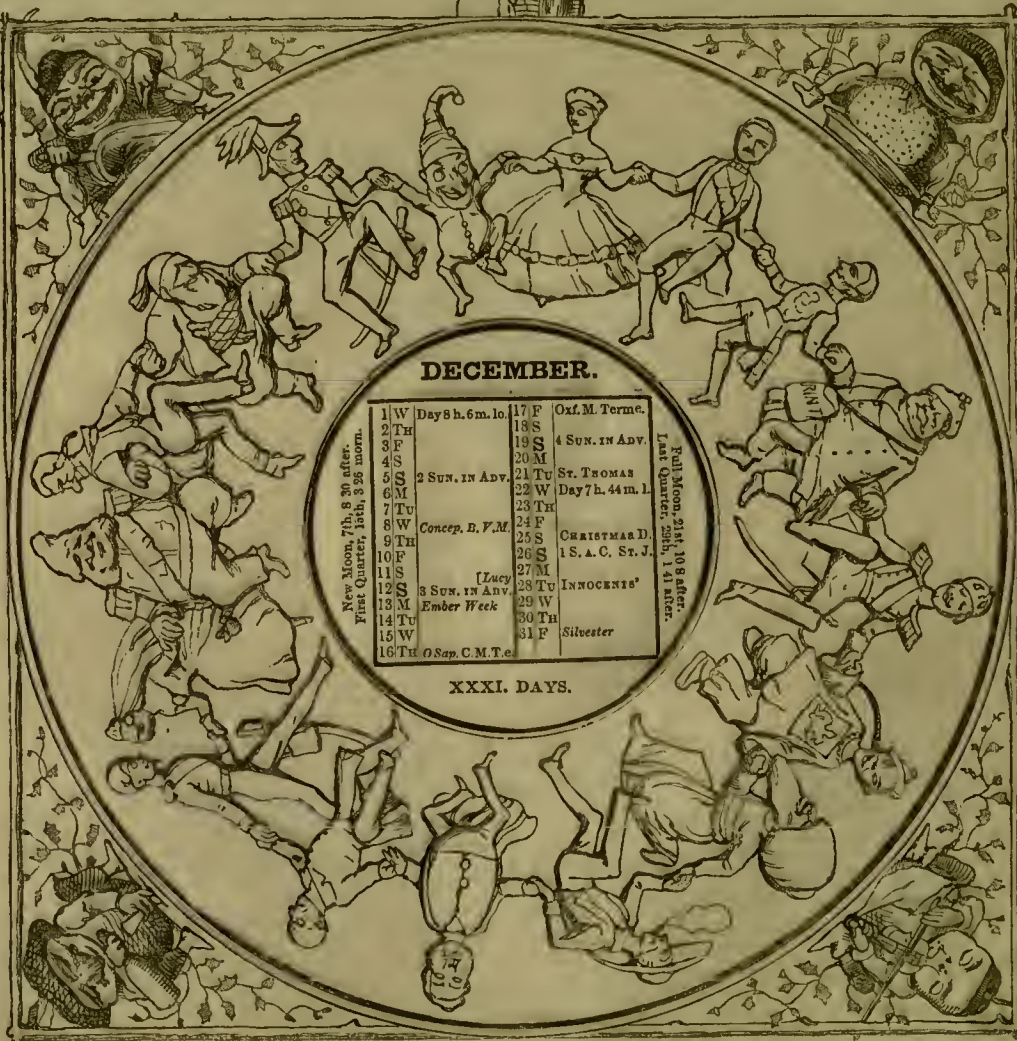 DECEMBER.
New Moon, 7th, 8 30 after.
First Quarter, 15th, 3 26 morn.
1 W Day 8 h. 6 m. lo.
2 TH
3 F
4 S
5 S 2 SUN. IN ADV.
6 M
7 TU
8 W Concep. B. V. M.
9 TH
10 F
11 S [Lucy
12 S 3 SUN. IN ADV.
13 M Ember Week
14 TU
15 W
16 TH O Sap. C. M. T. e.
17 F Oxf. M. Terme.
18 S
19 S 4 SUN. IN ADV.
20 M
21 TU ST. THOMAS
22 W Day 7 h. 44 m. l.
23 TH
24 F
25 S CHRISTMAS D.
26 S 1 S. A. C. ST. J.
27 M
28 TU INNOCENTS'
29 W
30 TH
31 F Silvester
Full Moon, 21st, 10 8 after.
Last Quarter, 29th, 1 41 after.
XXXI. DAYS.